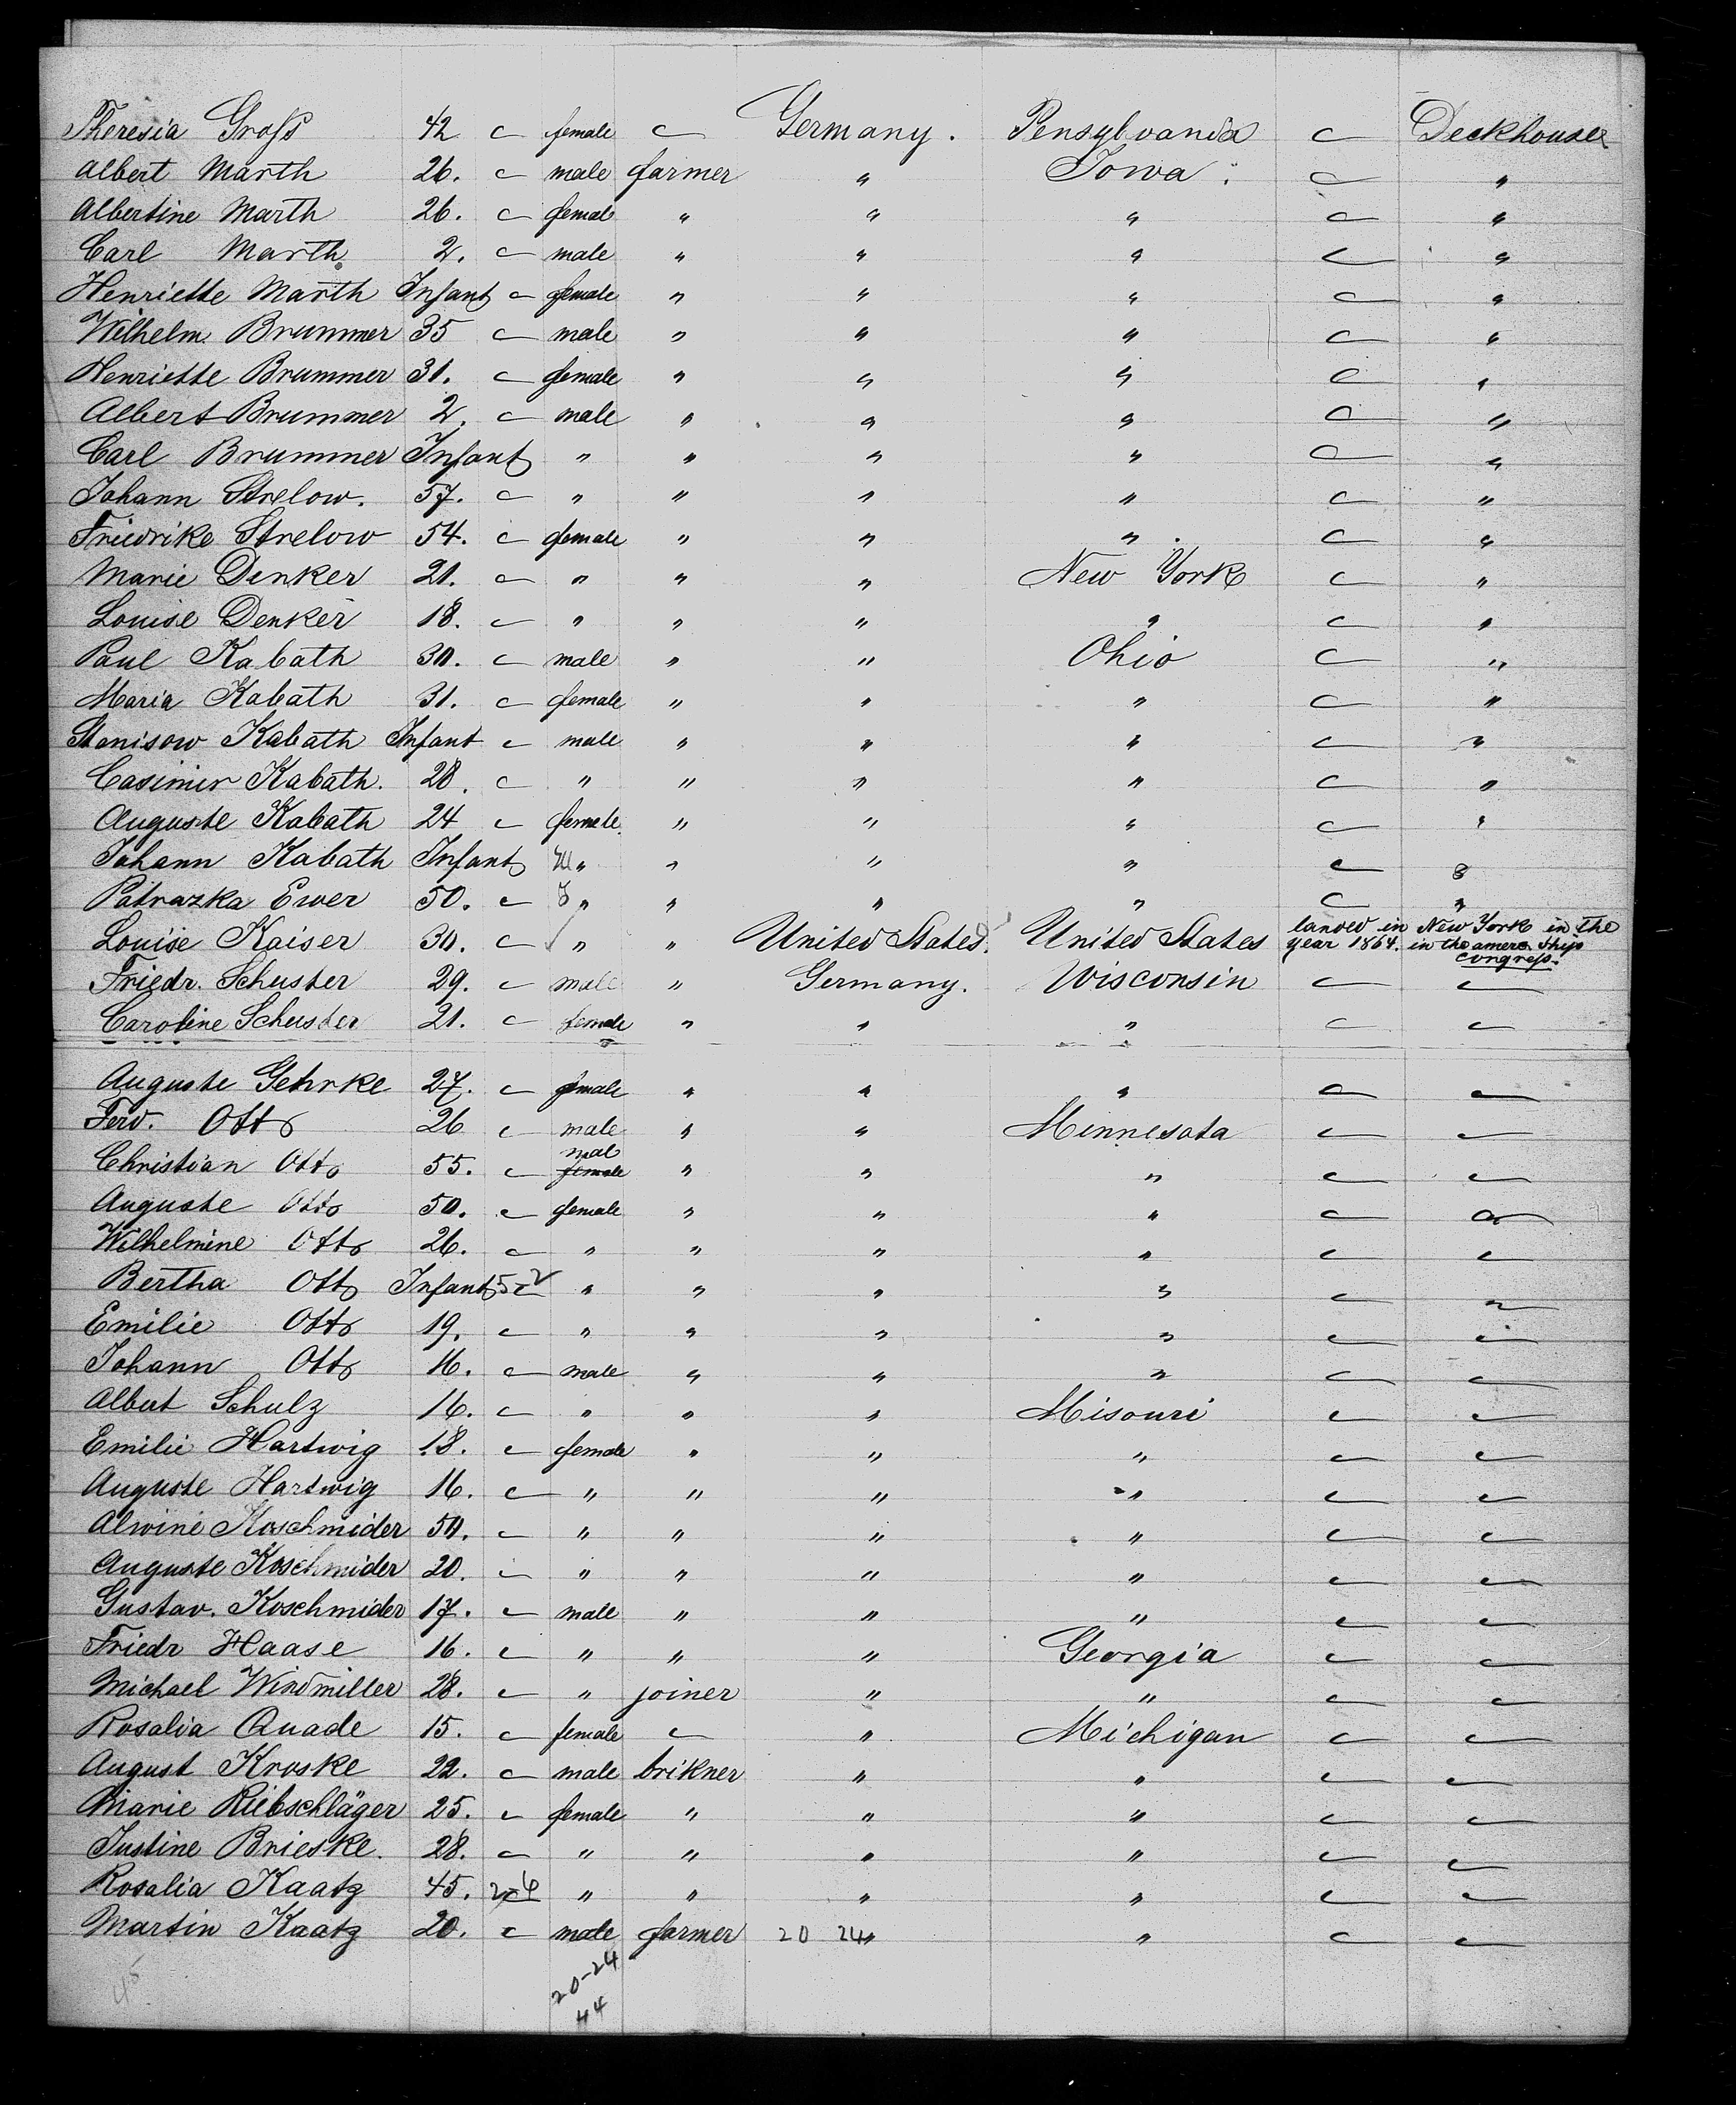 Theresia Groſs 42 c female c Germany. Pensylvania c Deckhouse
Albert Marth 26. c male farmer " Iowa. c "
Albertine Marth 26. c female " " " c "
Carl Marth 2. c male " " " c "
Henriette Marth Infant c female " " " c "
Wilhelm Brummer 35 c male " " " c "
Henriette Brummer 31. c female " " " c "
Albert Brummer 2. c male " " " c "
Carl Brummer Infant " " " " c "
Johann Strelow. 57. c " " " " c "
Friedrike Strelow 54. c female " " " c "
Marie Denker 21. c " " " New York c "
Louise Denker 18. c " " " " c "
Paul Kabath 30. c male " " Ohio c "
Maria Kabath 31. c female " " " c "
Stanisow Kabath Infant c male " " " c "
Casimir Kabath. 28. c " " " " c "
Auguste Kabath 24 c female " " " c "
Johann Kabath Infant M " " " " c "
Patrazka Ewer 50. c F " " " " c "
Louise Kaiser 30. c " " United States. United States landed in New York in the
year 1864. in the amerc. Ship
Congreſs.
Friedr. Schuster 29. c male " Germany. Wisconsin c c
Caroline Schuster 21. c female " " " c c
Auguste Gehrke 27. c female " " " c c
Ferd. Otto 26 c male " " Minnesota c c
mal
Christian Otto 55. c female " " " c c
Auguste Otto 50. c female " " " c c
Wilhelmine Otto 26. c " " " " c c
Bertha Otto Infant 5 c 2 " " " " c c
Emilie Otto 19. c " " " " c c
Johann Otto 16. c male " " " c c
Albert Schulz 16. c " " " Misouri c c
Emilie Hartwig 18. c female " " " c c
Auguste Hartwig 16. c " " " " c c
Alwine Koschmider 50. c " " " " c c
Auguste Koschmider 20. c " " " " c c
Gustav. Koschmider 17. c male " " " c c
Friedr Haase 16. c " " " Georgia c c
Michael Windmiller 28. c " joiner " " c c
Rosalia Quade 15. c female c " Michigan c c
August Kroske 22. c male brikner " " c c
Marie Riebschläger 25. c female " " " c c
Justine Brieske. 28. c " " " " c c
Rosalia Kaatz 45. 2 c 4 " " " " c c
Martin Kaatz 20. c male farmer 20 24 " " c c
20-24
44
45